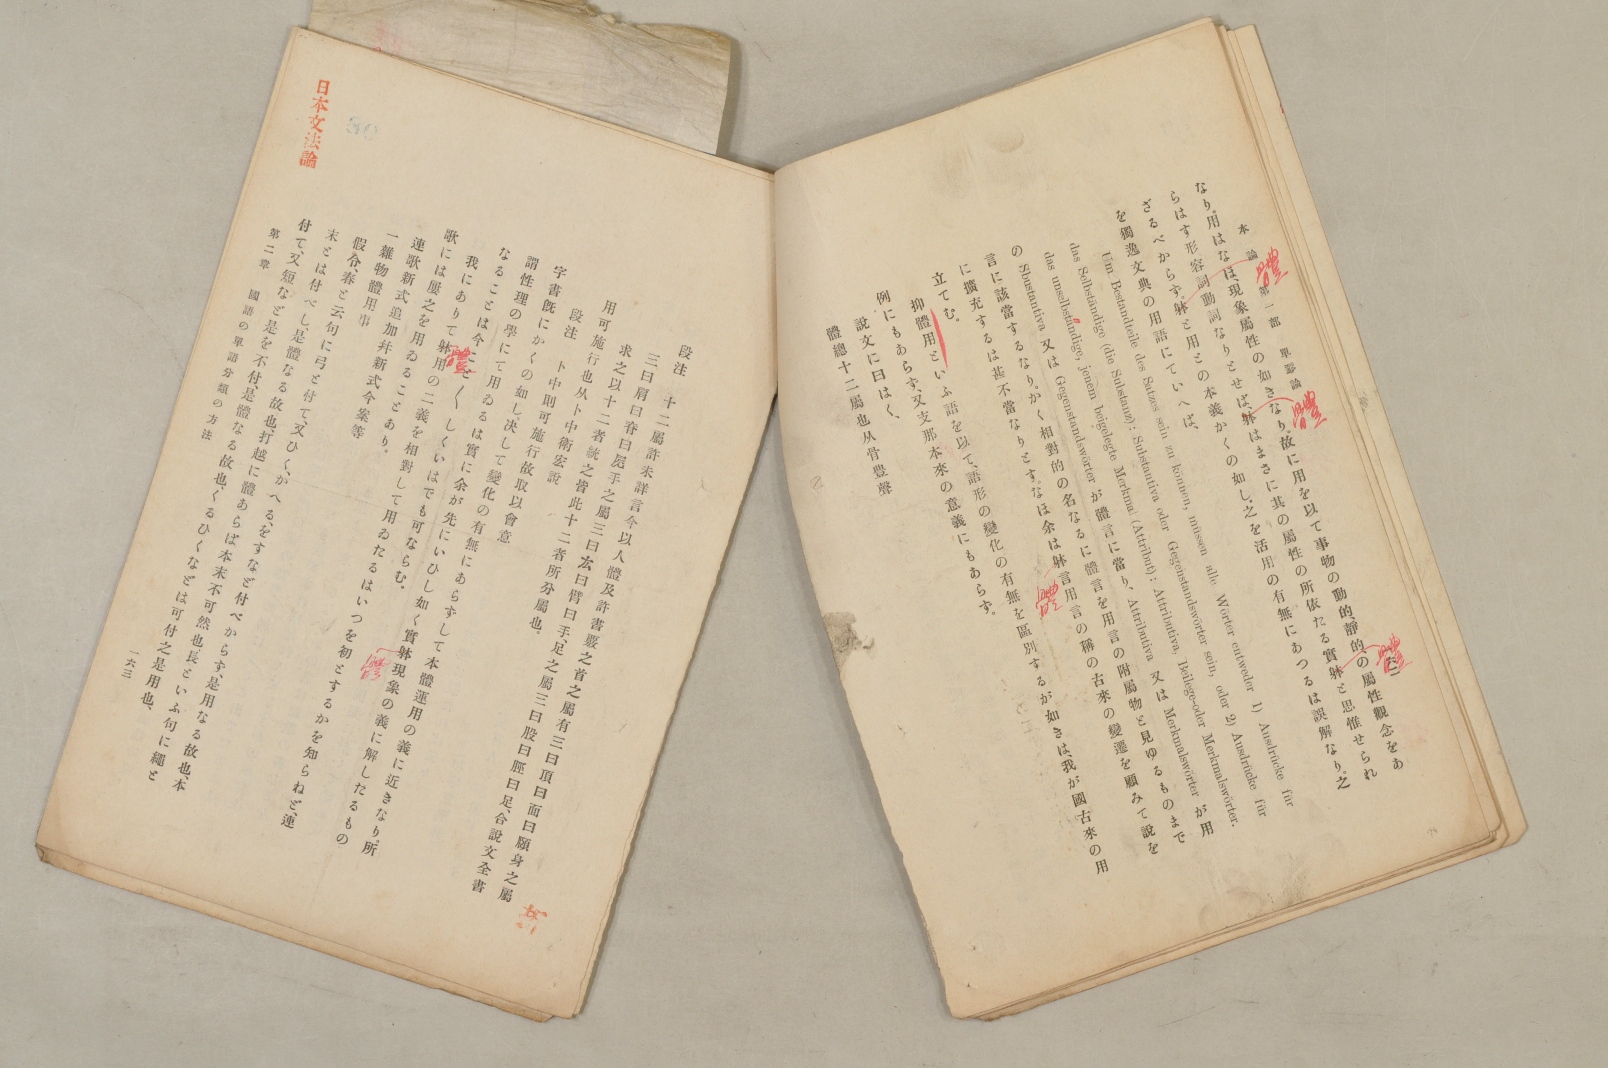 本論 第一部 單語論
なり。用はなほ現象屬性の如きなり。故に用を以て事物の動的、靜的の屬性觀念をあ
らはす形容詞動詞なりとせば、躰はまさに其の屬性の所依たる實躰と思惟せられ
ざるべからず。躰と用との本義かくの如し。之を活用の有無にあつるは誤解なり。之
を獨逸文典の用語にていへば、
Um Bestandteile des Satzes sein zu können, müssen alle Wörter entweder 1) Ausdrücke für
das Selbständige (die Substanz): Substantiva oder Gegenstandswörter sein, oder 2) Ausdrücke für
das unselbständige, jenem beigelegte Merkmal (Attribut): Attributiva, Beilege-oder Merkmalswörter.
の Sbstantiva 又は Gegenstandswörter が體言に當り、Attributiva 又は Merkmalswörter が用
言に該當するなり。かく相對的の名なるに體言を用言の附屬物と見ゆるものまで
に擴充するは甚不當なりとす。なほ余は躰言用言の稱の古來の變遷を顧みて說を
立てむ。
抑體用といふ語を以て、語形の變化の有無を區別するが如きは我が國古來の用
例にもあらず、又支那本來の意義にもあらず。
說文に曰はく、
體總十二屬也从骨豊聲
段注 十二屬許未詳言今以人體及許書覈之首之屬有三曰頂曰面曰頤身之屬
三曰肩曰脊曰𡱂手之屬三曰厷曰臂曰手、足之屬三曰股曰脛曰足、合說文全書
求之以十二者統之皆此十二者所分屬也。
用可施行也从卜中衛宏說
段注 卜中則可施行故取以會意
字書旣にかくの如し、決して變化の有無にあらずして本體運用の義に近きなり。所
謂性理の學にて用ゐるは實に余が先にいひし如く實躰現象の義に解したるもの
なることは今ことくしくいはでも可ならむ。
我にありて躰用の二義を相對して用ゐたるはいつを初とするかを知らねど、連
歌には屢之を用ゐることあり。
連歌新式追加幷新式今案等
一雜物體用事
假令、春と云句に弓と付て、又ひく、かへる、をすなど付べからず、是用なる故也、本
末とは付べし、是體なる故也、打越に體あらば本末不可然也、長といふ句に繩と
付て、又短など是を不付、是體なる故也、くるひくなどは可付之是用也、
第二章 國語の單語分類の方法
一六三
日本文法論
80
體
體
體
體
體
體